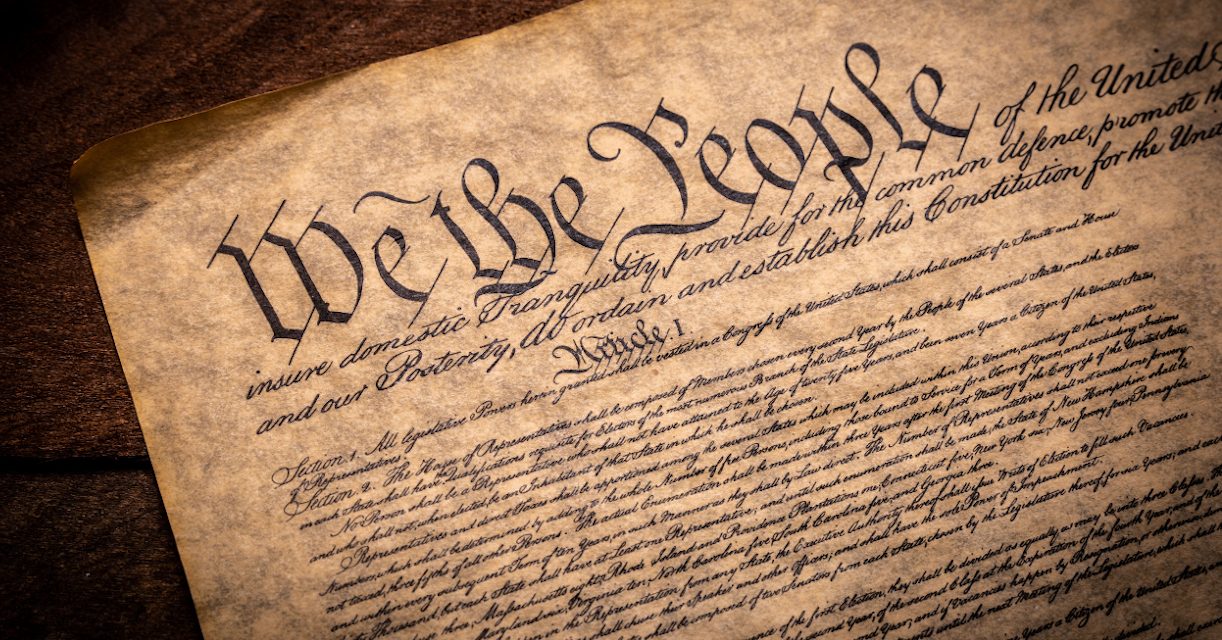 We the People of the United
insure domestic Tranquility, provide for the common defence, promote
and our Posterity, do ordain and establish this Constitution for the
Article I.
Section 1. All legislative Powers herein granted shall be vested in a Congress of the United States, which shall consist of a Senate and House
of Representatives.
Section 2. The House of Representatives shall be composed of Members chosen every second Year by the People of the several States, and the Electors
in each State shall have Qualifications requisite for Electors of the most numerous Branch of the State Legislature.
No Person shall be a Representative who shall not have attained to the Age of twenty five Years, and been seven Years a Citizen of the United States,
and who shall not, when elected, be an Inhabitant of that State in which he shall be chosen.
Representatives and direct Taxes shall be apportioned among the several States which may be included within this Union, according to their respective
Numbers, which shall be determined by adding to the whole Number of free Persons, including those bound to Service for a Term of Years, and excluding Indians
not taxed, three fifths of all other Persons. The actual Enumeration shall be made within three Years after the first Meeting of the Congress of the United States,
and within every subsequent Term of ten Years, in such Manner as they shall by Law direct. The Number of Representatives shall not exceed one for every
Thousand, but each State shall have at Least one Representative; and until such enumeration shall be made, the State of New Hampshire shall be
three, Massachusetts eight, Rhode Island and Providence Plantations one, Connecticut five, New York six, New Jersey four, Pennsylvania
Maryland six, Virginia ten, North Carolina five, South Carolina five, and Georgia three.
in the Representation from any State, the Executive Authority thereof shall issue Writs of Election to fill such Vacancies.
shall chuse their Speaker and other Officers; and shall have the sole Power of Impeachment.
shall be composed of two Senators from each State, chosen by the Legislature thereof, for six Years; and
of the first Election, they shall be divided as equally as may be into three Classes.
second Year, of the second Class at the Expiration of the fourth Year, and of the
and if Vacancies happen by Resignation, or otherwise
until the next Meeting of the Legislature, which shall
Years a Citizen of the United States,